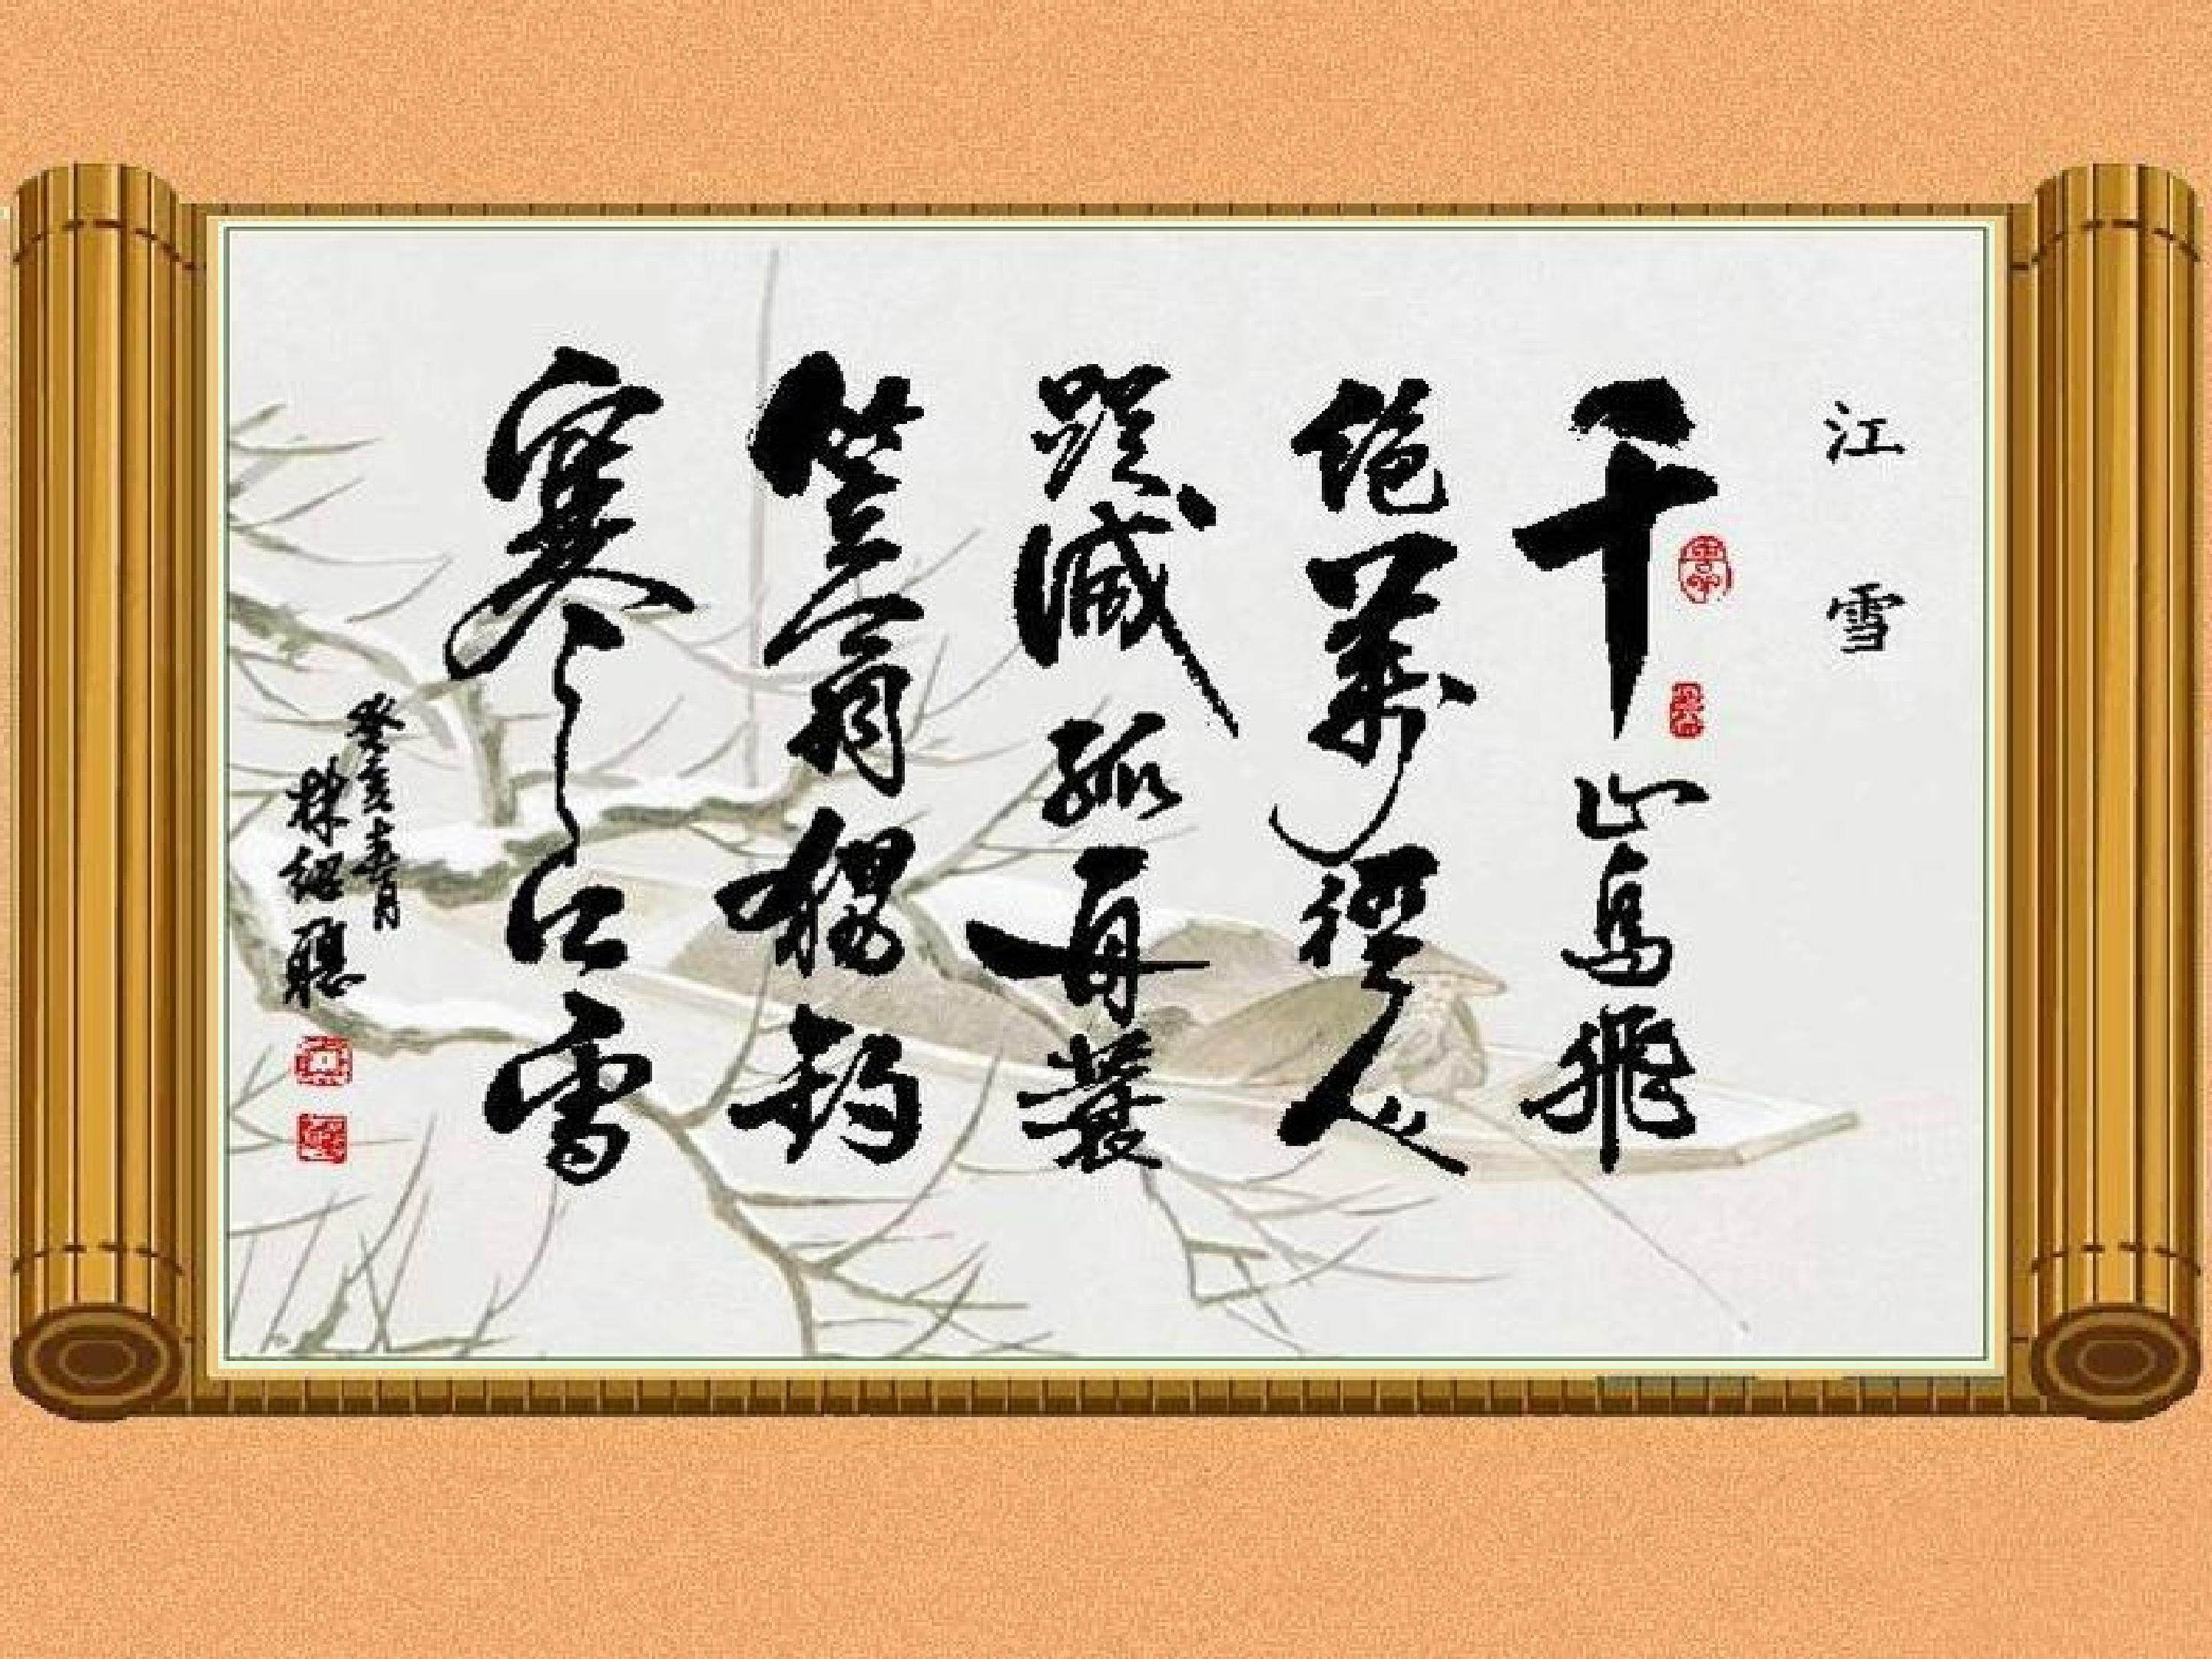 江雪
千山鳥飛
絕萬徑人
蹤滅孤舟蓑
笠翁獨釣
寒江雪
癸亥春月
林紹聰